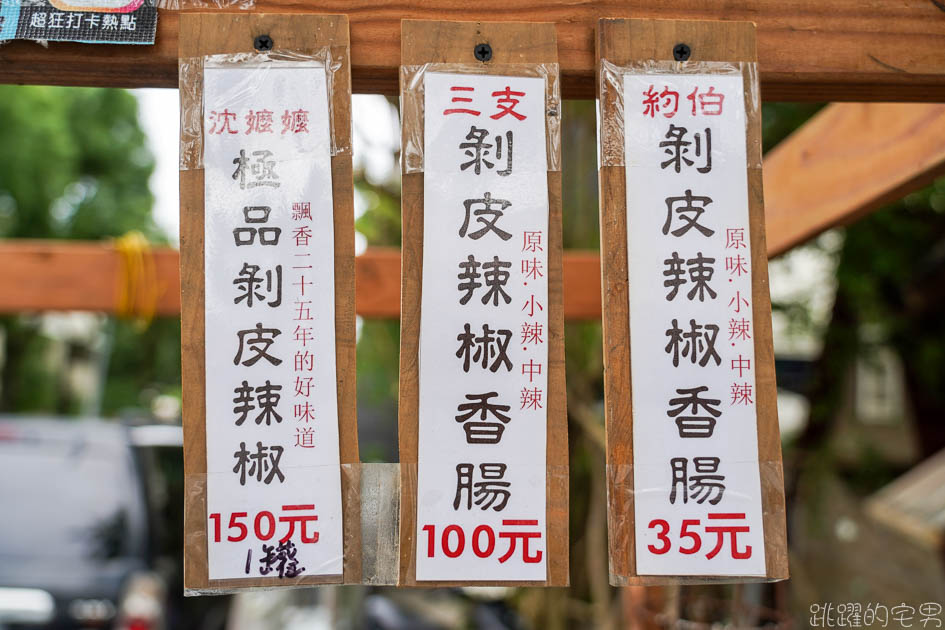 超狂打卡熱點
沈嬤嬤
極品剝皮辣椒
飄香二十五年的好味道
150元
1罐
三支
剝皮辣椒香腸
原味·小辣·中辣
100元
約伯
剝皮辣椒香腸
原味·小辣·中辣
35元
跳躍的宅男